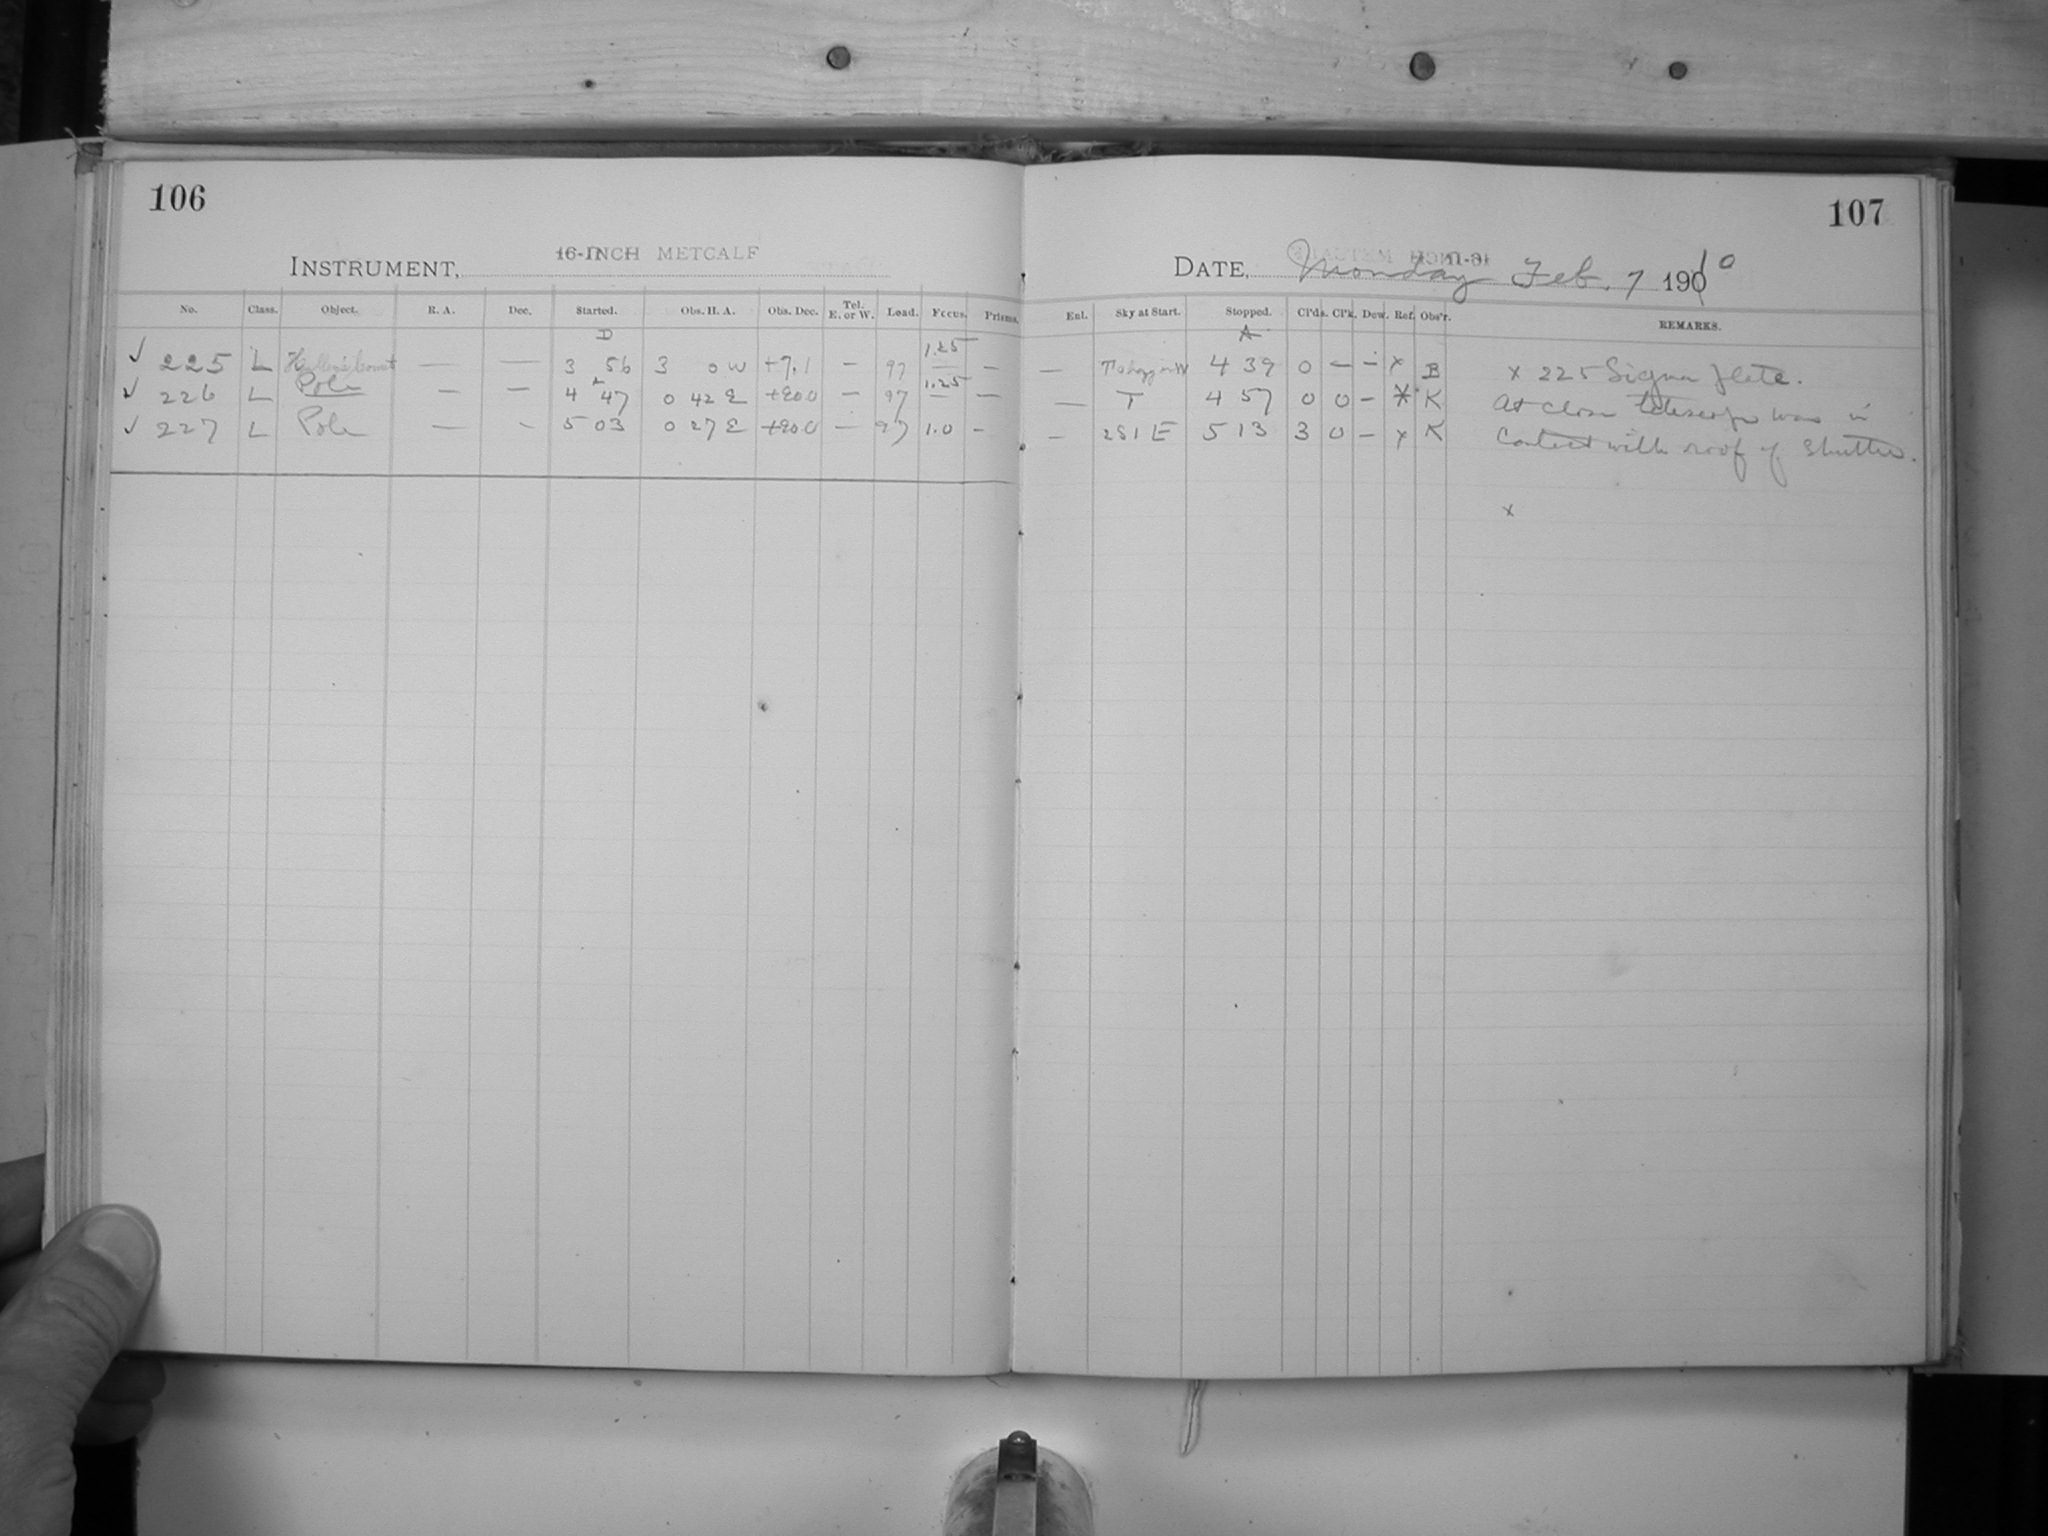 106
INSTRUMENT, 16-INCH METCALF
No. Class. Object. R. A. Dec. Started. Obs. H. A. Obs. Dec. Tel. E. or W. Load. Focus. Prisms.
D
✓ 225 L Halley's Comet — — 3 56 3 0 W +7.1 — 97 1.25 —
✓ 226 L Pole — — 4 47 0 42 E +90 0 — 97 1.25 —
✓ 227 L Pole — - 5 03 0 27 E +90 0 — 97 1.0 -
107
DATE, Monday Feb. 7 1910
Enl. Sky at Start. Stopped. Cl'ds. Cl'k. Dew. Ref. Obs'r. REMARKS.
A
— 4 39 0 — — x B x 225 Sigma plate.
— T 4 57 0 0 — * K At close telescope was in
— 2S1E 5 13 3 0 — x K Contact with roof of Shutter.
x